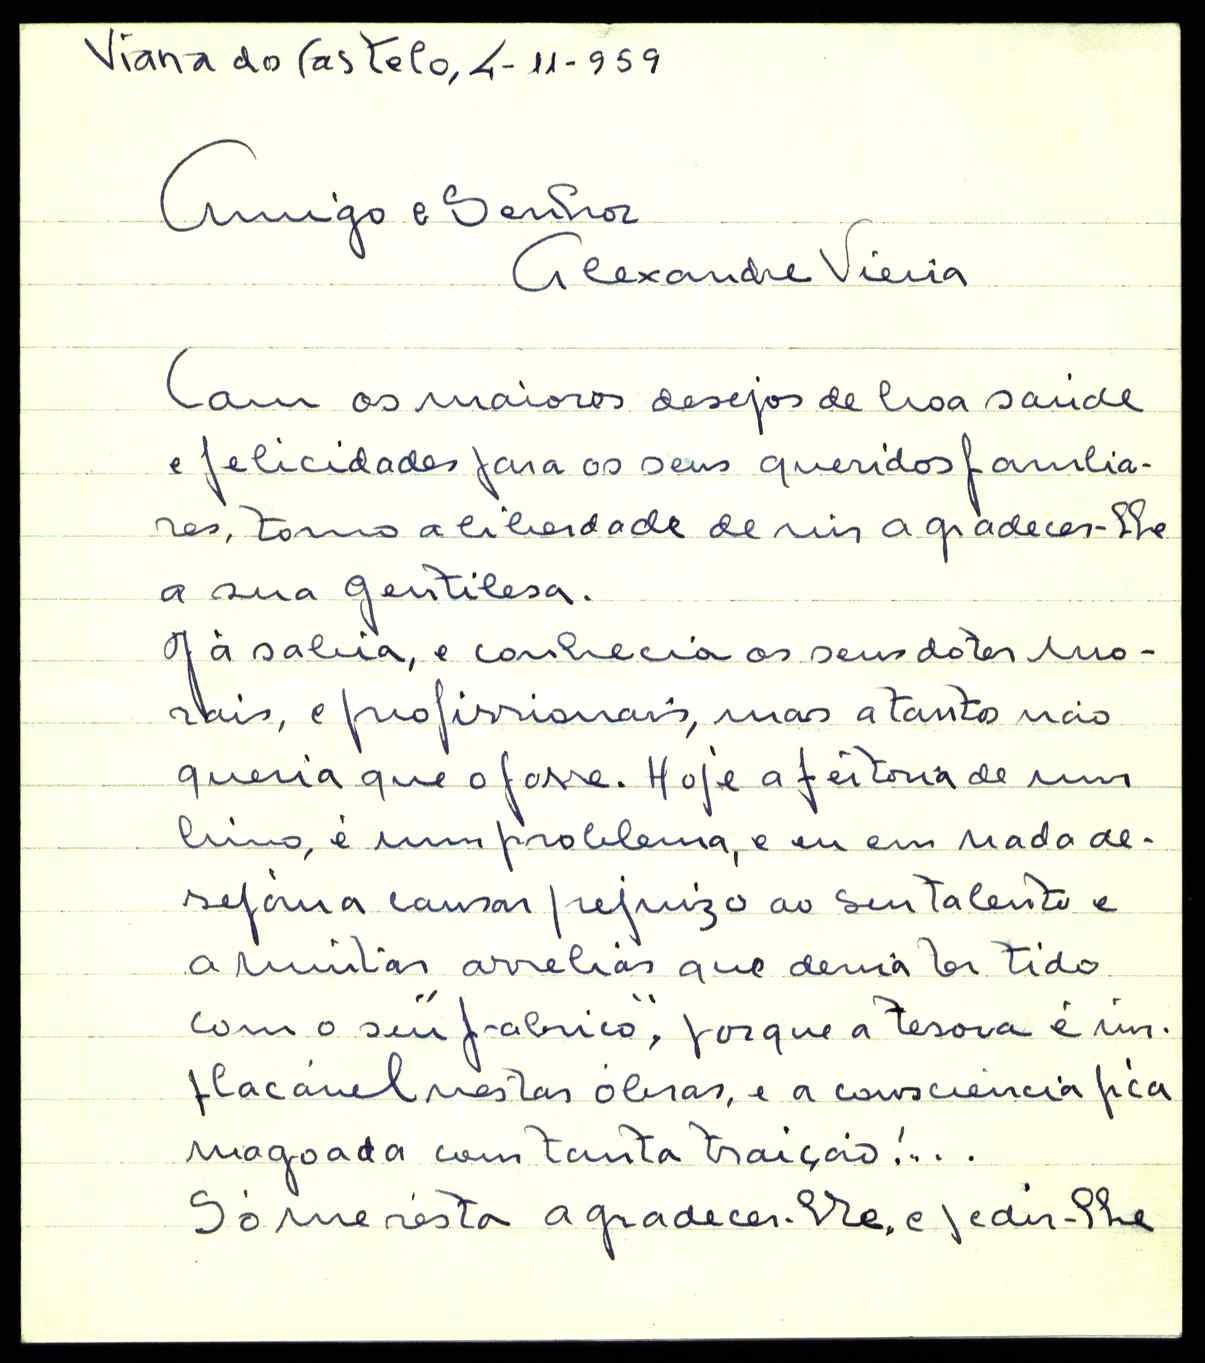 Viana do Castelo, 4-11-959
Amigo e Senhor
Alexandre Vieira
Com os maiores desejos de boa saúde
e felicidades para os seus queridos familia-
res, tomo a liberdade de vir agradecer-lhe
a sua gentilesa.
Já sabia, e conhecia os seus dotes mo-
rais, e profissionais, mas a tanto não
queria que o fosse. Hoje a feitoria de um
livro, é um problema, e eu em nada de-
sejaria causar prejuizo ao seu talento e
a muitas arrelias que devia ter tido
com o seu "fabrico", porque a tesoura é im-
placável nestas óbras, e a consciencia fica
magoada com tanta traição!...
Só me résta agradecer-lhe, e pedir-lhe